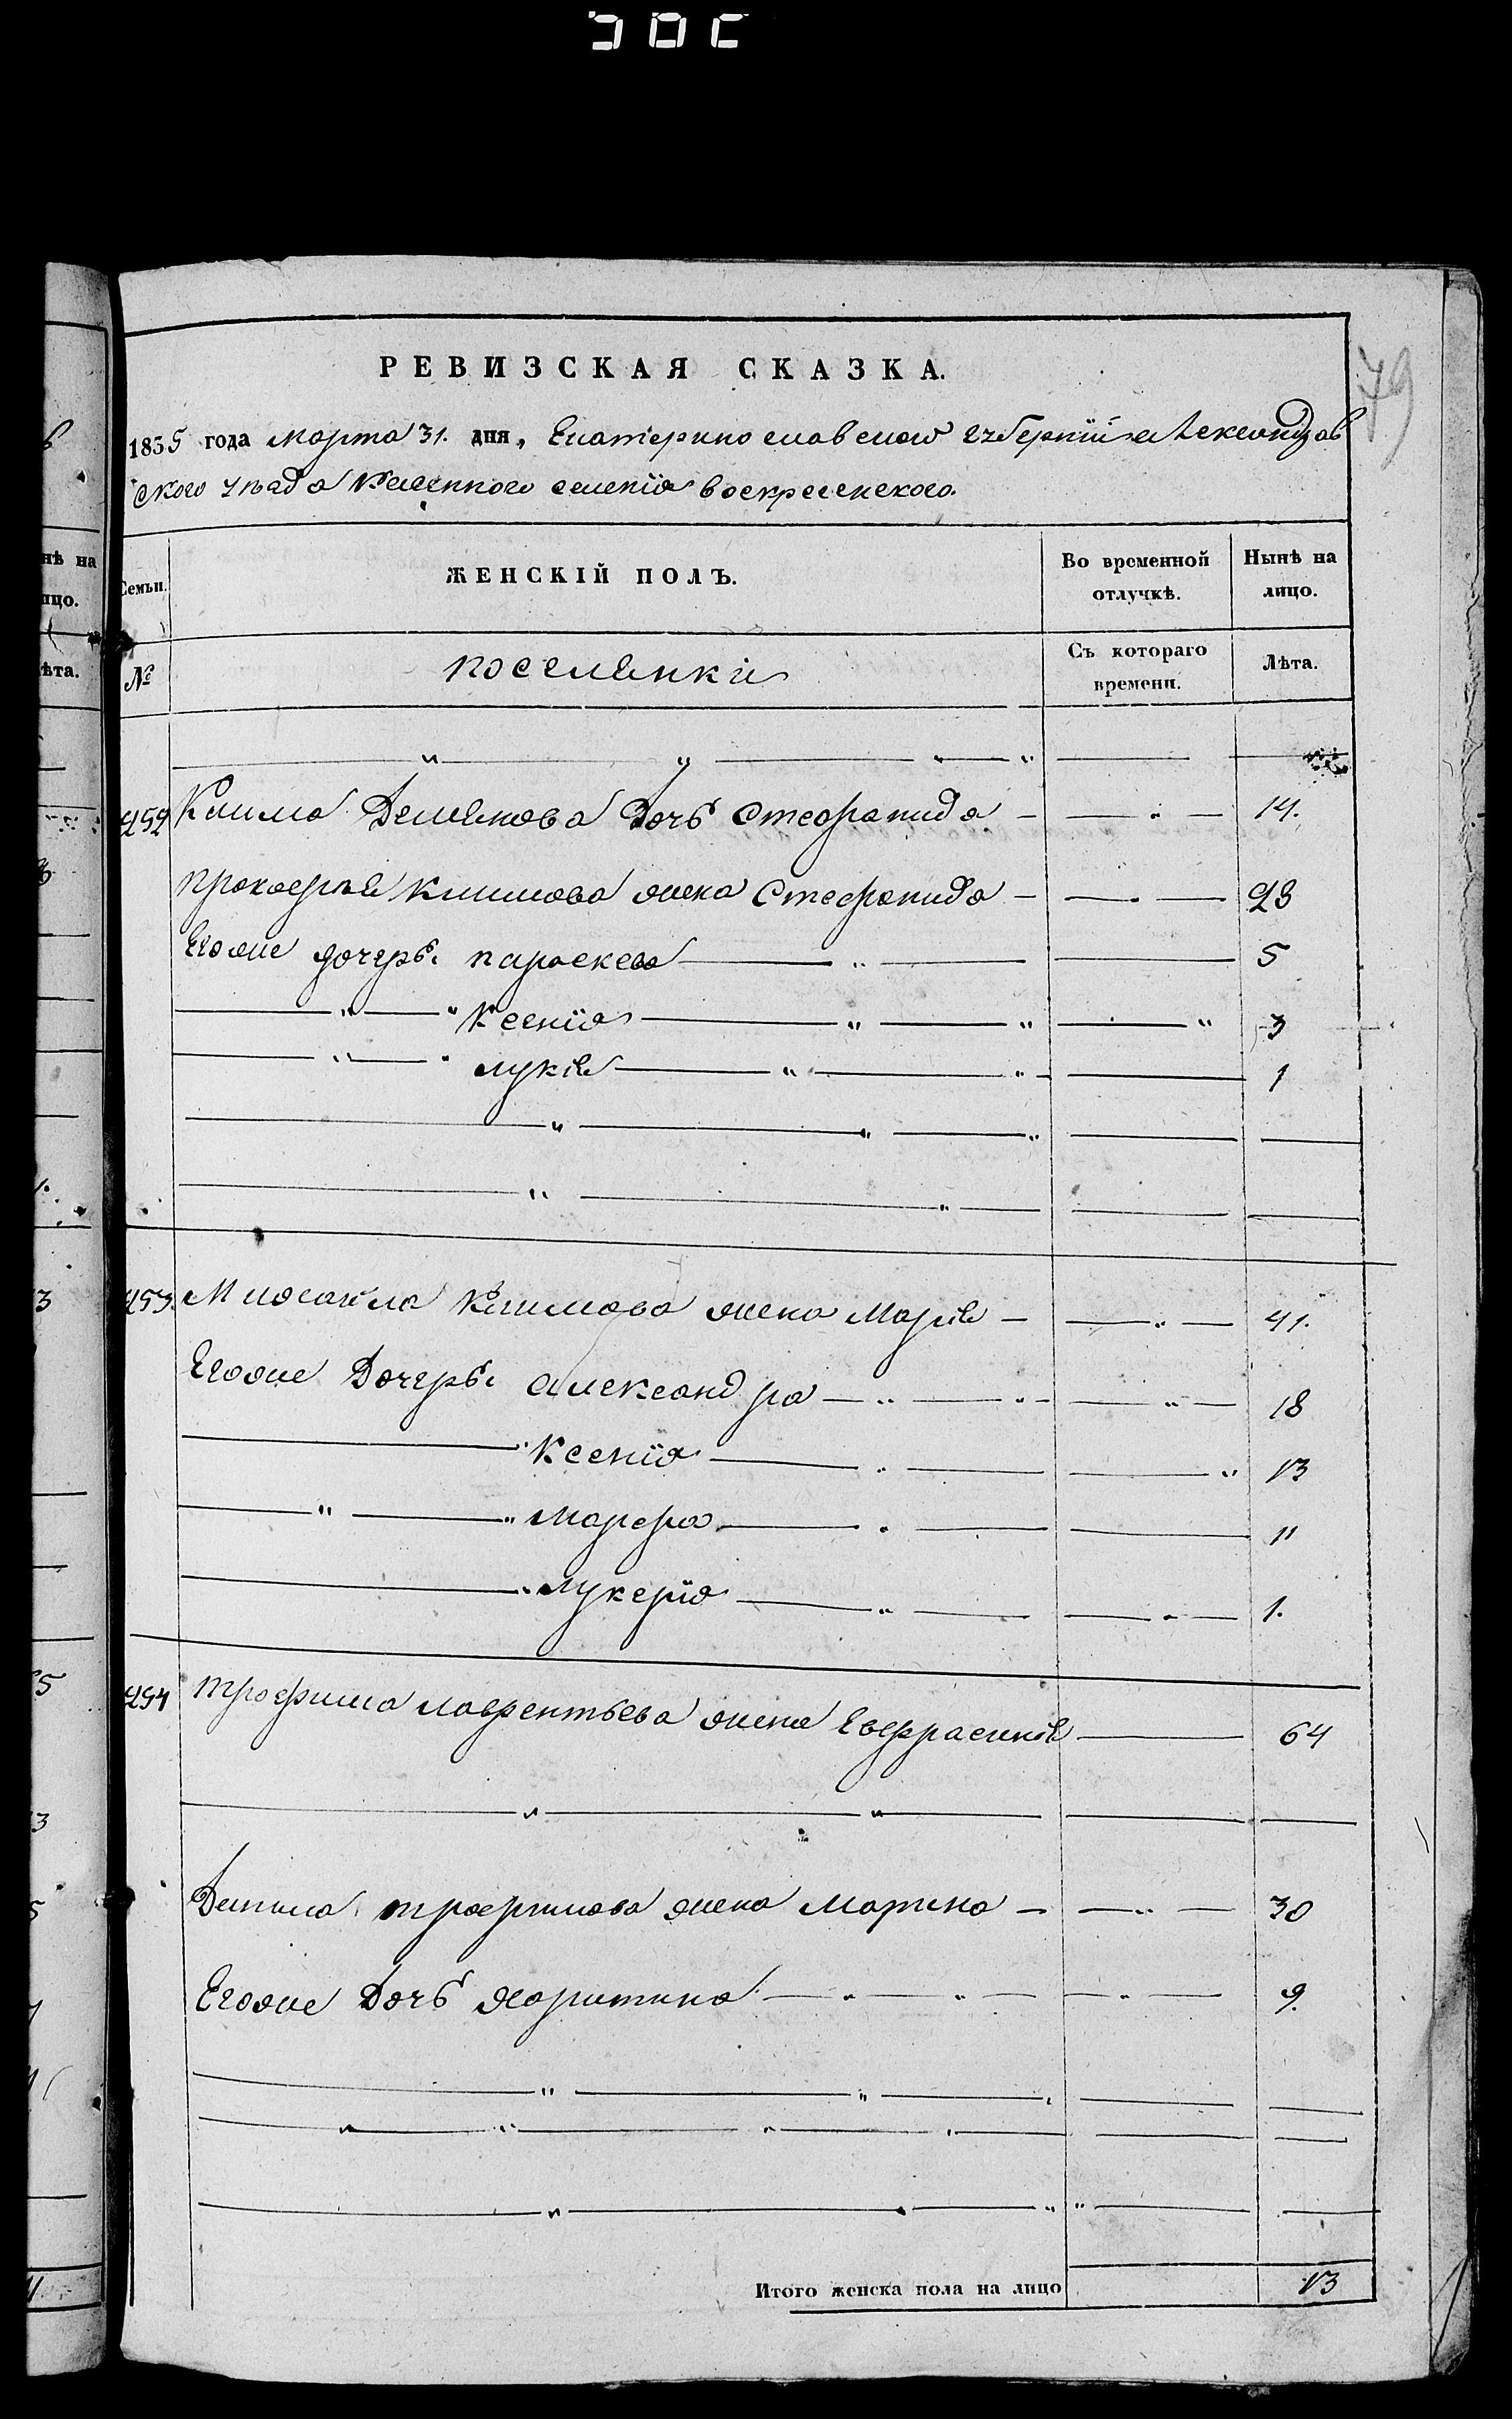 79
РЕВИЗСКАЯ СКАЗКА.
1835 года марта 31. дня, Екатеринославской губернии Александров
ского уезда казенного селения воскресенского.
Семьи. ЖЕНСКІЙ ПОЛЪ. Во временной отлучкѣ. Нынѣ на лицо.
№ поселянки Съ котораго времени. Лѣта.
452 Клима дочь Стефанида 14.
прокофья климова жена Стефанида 23
Егоже дочери параскева 5
Ксения 3
1
453. климова жена Мария 41.
Егоже Дочери александра 18
Ксения 13
Марфа 11
Лукерия 1.
454 трофима лаврентьева жена 64
трофимова жена Марина 30
Егоже Дочь харитина 9.
Итого женска пола на лицо 13